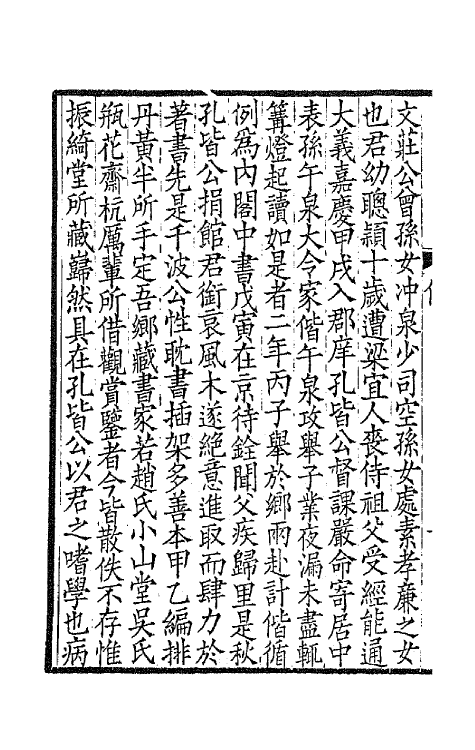 文莊公曾孫女冲泉少司空孫女處素孝廉之女
也君幼聰頴十歲遭梁宜人喪侍祖父受經能通
大義嘉慶甲戌入郡庠孔皆公督課嚴命寄居中
表孫午泉大令家偕午泉攻舉子業夜漏未盡輒
篝燈起讀如是者二年丙子舉於鄉兩赴計偕循
例爲内閣中書戊寅在京待銓聞父疾歸里是秋
孔皆公捐館君銜哀風木遂絶意進取而肆力於
著書先是千波公性耽書插架多善本甲乙編排
丹黃半所手定吾鄉藏書家若趙氏小山堂吳氏
瓶花齋杭厲輩所借觀賞鑒者今皆散佚不存惟
振綺堂所藏巋然具在孔皆公以君之嗜學也病